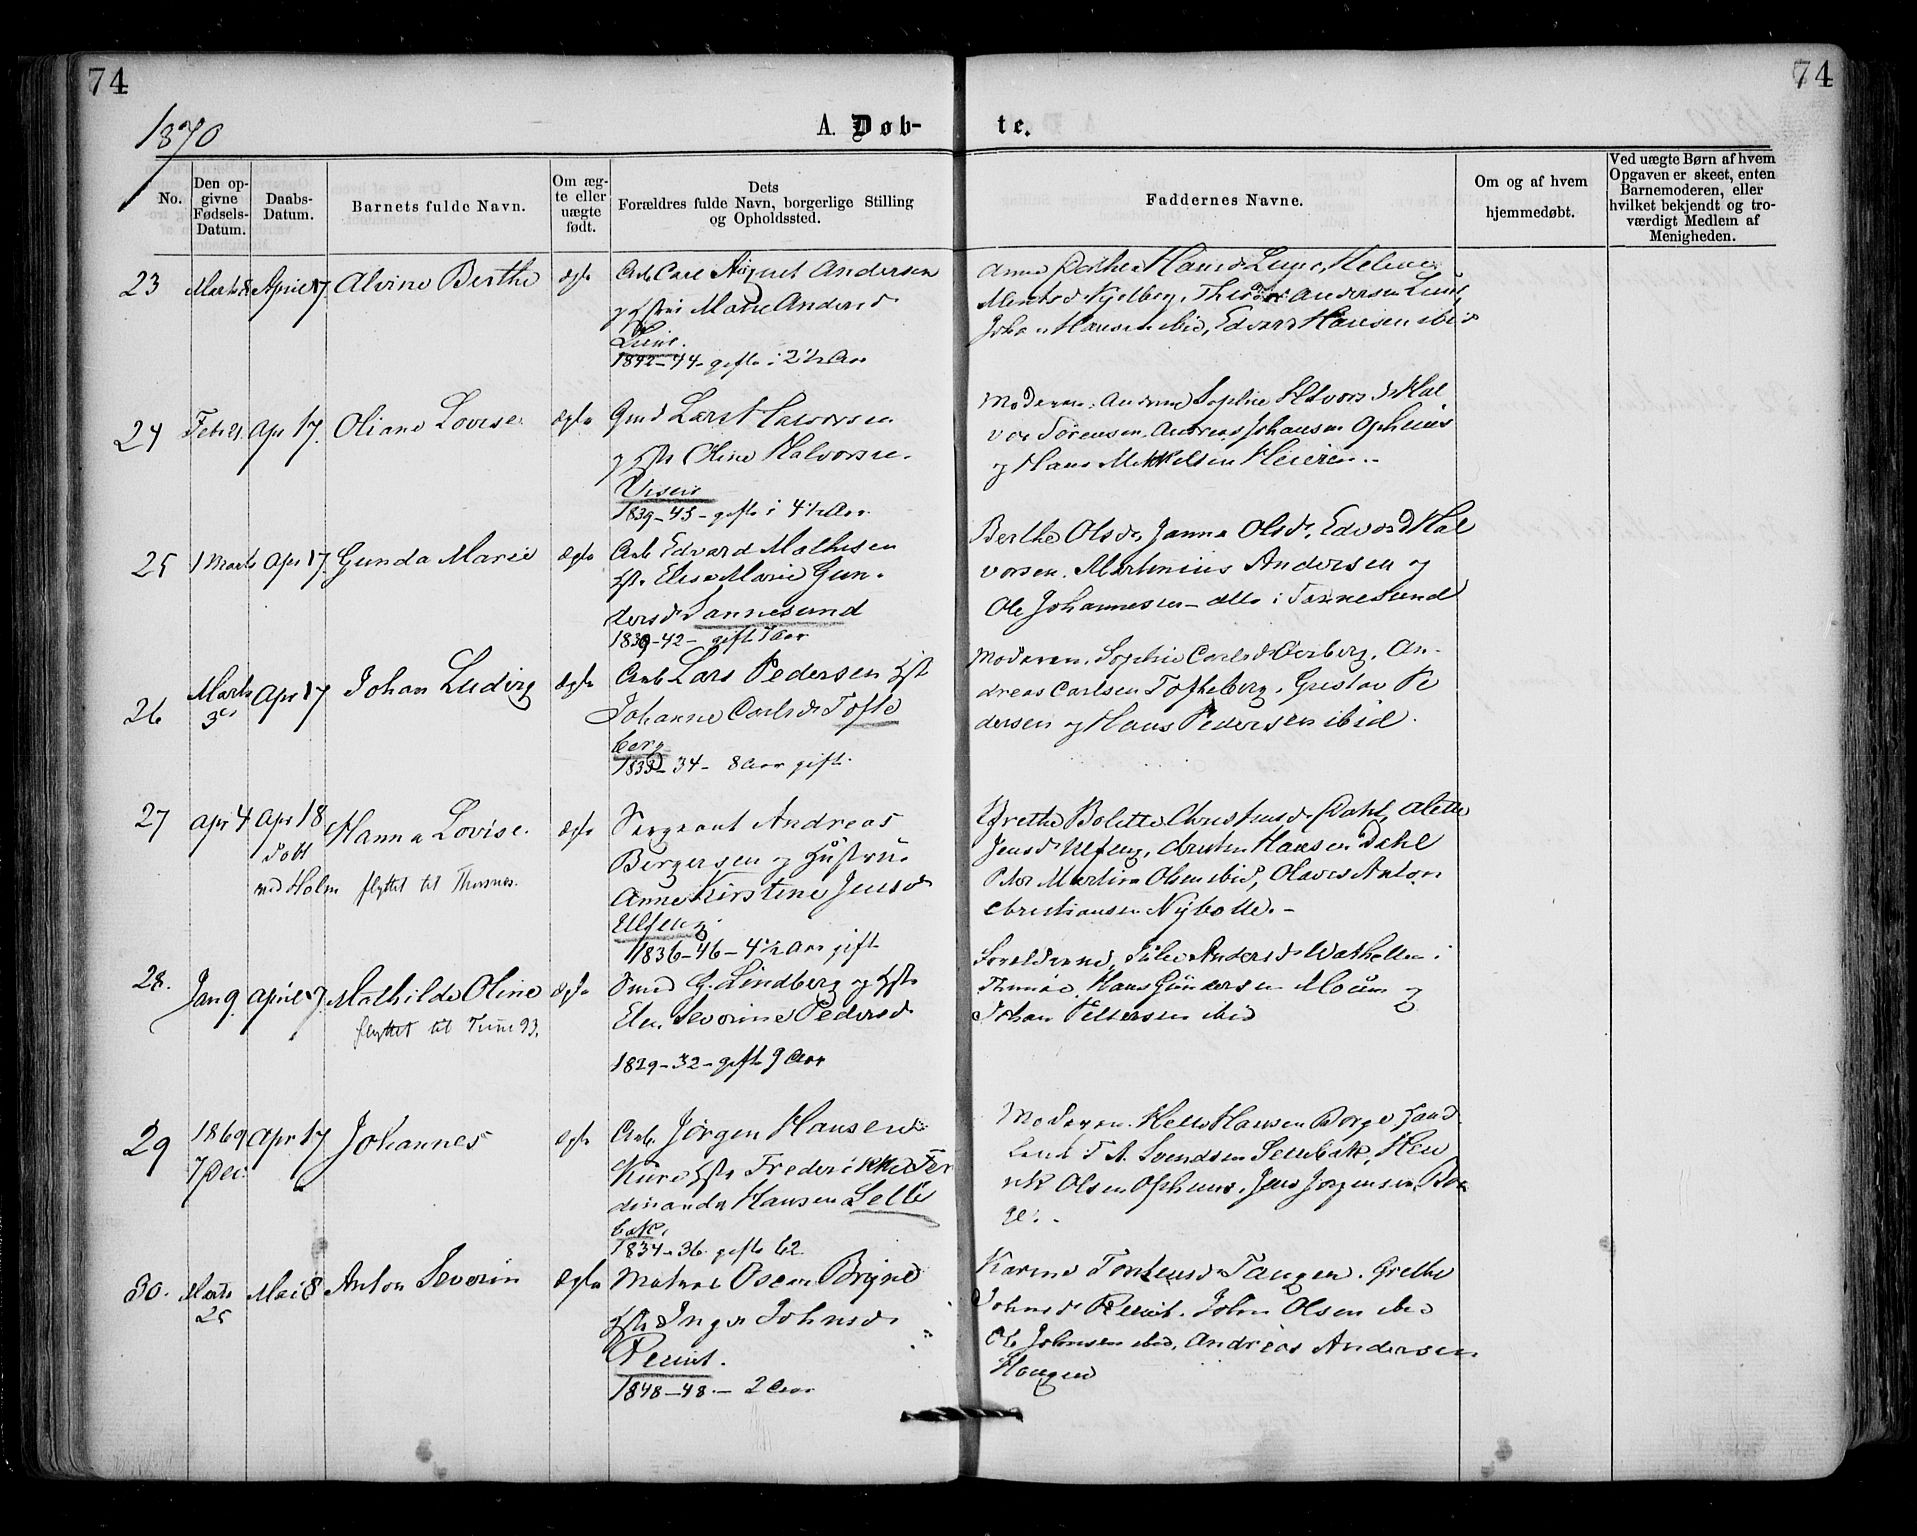 74
74
1870
A. Døb-
te.
No.
Den op-
givne
Fødsels-
Datum.
Daabs-
Datum.
Barnets fulde Navn.
Om æg-
te eller
uægte
født.
Dets
Forældres fulde Navn, borgerlige Stilling
og Opholdssted.
Faddernes Navne.
Om og af hvem
hjemmedøbt.
Ved uægte Børn af hvem
Opgaven er skeet, enten
Barnemoderen, eller
hvilket bekjendt og tro-
værdigt Medlem af
Menigheden.
23 Marts 8 April 17 Alvine Berthe ægte
Arb. Carl August Andersen
Marie Andersd
1842-44- gifte i 2½ Aar
Anna Hansd Helene
Andersen
Johan Hansen ibid, Edvard Hansen ibid
24 Feb 21. Apr 17. Oliane Lovise. ægte
Lars Halvorsen
og Hstr Oline Halvorsen.
Viseus
1839-43- gifte i 4½ Aar
Moderen. Sophie Halvorsd Hal
vor Sørensen. Andreas Johansen Ophuus
og Hans Mikkelsen Heieren.-
25 1 Marts Apr 17. Gunda Marie ægte
Arb Edvard Mathisen
Hstr. Elise Marie Gun-
dersd Sannesund
1839-42- gift 7 Aar
Berthe Olsd, Janna Olsd, Edvard Hal
vorsen. Martinius Andersen og
Ole Johannesen- alle i Sannesund
26 Marts 3 Apr 17 Johan Ludvig ægte
Arb Lars Pedersen Hst
Johanne Carlsd Tofte
berg
1833-34- 8 Aar gift.
Moderen. Sophie Carlsd An-
dreas Carlsen Tofteberg. Gustav Pe
dersen og Hans Pedersen ibid.
27 Apr 4 Apr 18
døbt
ved Holm
Hanna Lovise.
flyttet til
ægte
Sergeant Andreas
Børgersen og Hustru
Anne Kirstine Jensd
Ulfeng.
1836-46-4½ Aar gift
Grethe Bolette Christiansd Dahl, Alette
Jensd Ulfeng, Hansen Dahl
Peter Martin Olsen ibid, Anton
Christiansen Nybølle.-
28. Jan 9. April 17. Mathilde Oline ægte
flyttet til Tune 93.
Smed G. Lindberg og Hstr
Elen Severine Pedersd
1829-32- gifte 9 Aar
Forældrene, Julie Andersd
Hans Gundersen Moum og
Johan Pettersen ibid
29 1869
7 Dec.
Apr 17 Johannes ægte
Arb. Jørgen Hansen
Hstr Frederikke Fer
dinanda Hansen Selle
bak.
1834-36 gifte 62
Moderen. Hansen Borge,
A. Svendsen Sellebak, Hen
rik Olsen Ophuus, Jens Jørgensen Bor
ge.-
30. Marts
25
Mai 8 Anton Severin ægte
Matros Oscar
Hstr Inger Johnsd
1848-48.- 2 Aar
Karine Tangen. Grethe
Johnsd John Olsen ibid
Ole Johnsen ibid, Andreas Andersen
Haugen